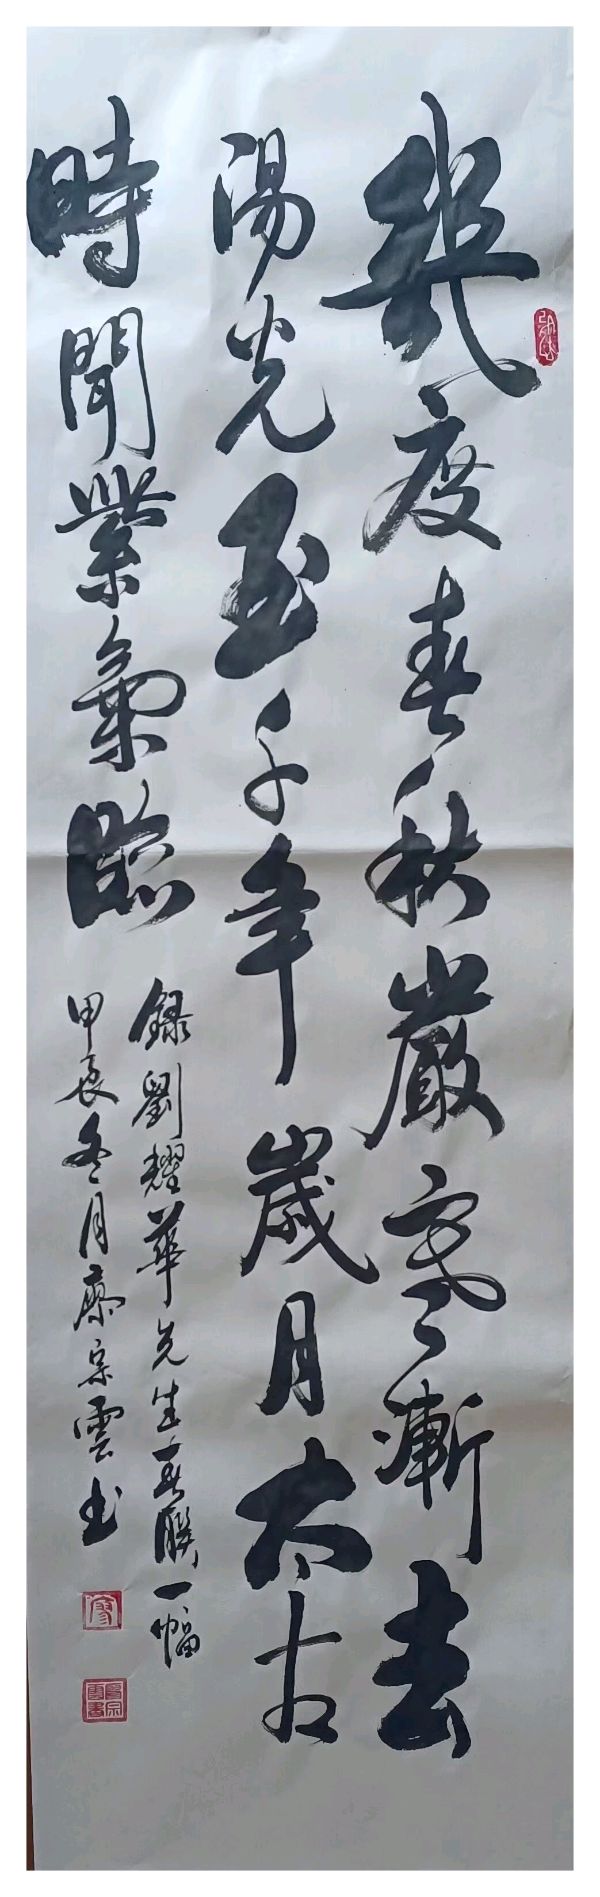 幾度春秋嚴寒漸去
陽光至千年歲月太古
時聞紫氣臨
錄劉耀華先生春聯一幅
甲辰冬月廖宗雲书